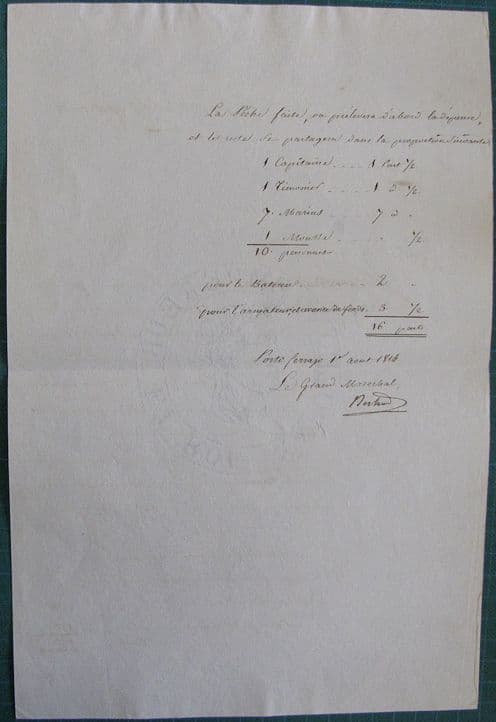 La Pêche faite, on prélevera d'abord la dépense,
et le reste se partagera dans la proportion suivante
1 Capitaine . . . . 1 Part ½
1 Timonier . . . . 1 d ½
7. Marins 7 d .
1 Mousse . . ½
10. personnes
pour le Bateau 2 .
pour l'armateur et avance de fonds. 3 ½
16 parts
Porto ferrajo 1er aout 1814
Le Grand Maréchal,
Bertrand